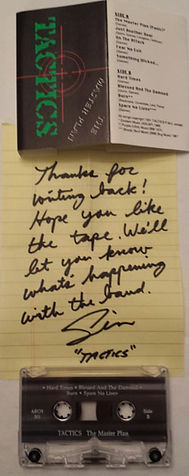 TACTICS
THE
MASTER PLAN
SIDE A
The Master Plan (Panic)?
Just Another Deal
On The Attack
Fear No Evil
Something Wicked...
SIDE B
Hard Times
Blessed And The Damned
Burn**
Spare No Lives
Thanks for
writing back!
Hope you like
the tape. We'll
let you know
what's happening
with the band.
"TACTICS"
• Hard Times • Blessed And The Damned •
Burn • Spare No Lives
Side
B
TACTICS The Master Plan